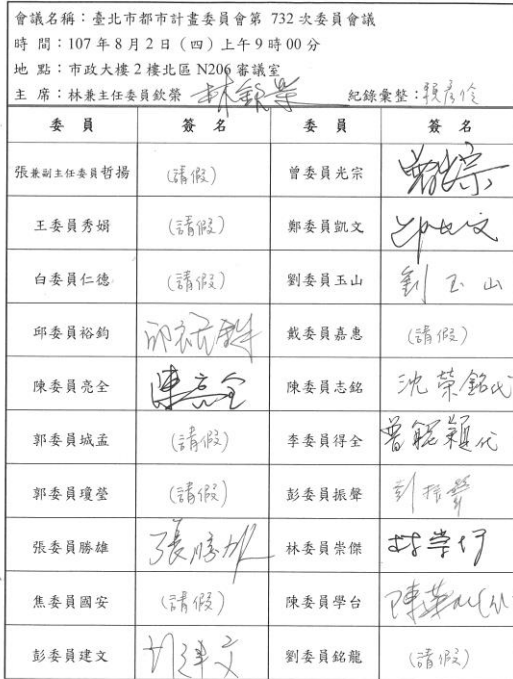 會議名稱：臺北市都市計畫委員會第 732 次委員會議
時 間：107 年 8 月 2 日（四）上午 9 時 00 分
地 點：市政大樓 2 樓北區 N206 審議室
主 席：林兼主任委員欽榮 林欽榮 紀錄彙整：賴彥伶
委 員 簽 名 委 員 簽 名
張兼副主任委員哲揚 (請假) 曾委員光宗 曾光宗
王委員秀娟 (請假) 鄭委員凱文
白委員仁德 (請假) 劉委員玉山 劉玉山
邱委員裕鈞 邱裕鈞 戴委員嘉惠 (請假)
陳委員亮全 陳亮全 陳委員志銘 沈榮銘代
郭委員城孟 (請假) 李委員得全 曾能穎代
郭委員瓊瑩 (請假) 彭委員振聲 彭振聲
張委員勝雄 張勝雄 林委員崇傑 林崇傑
焦委員國安 (請假) 陳委員學台
彭委員建文 彭建文 劉委員銘龍 (請假)